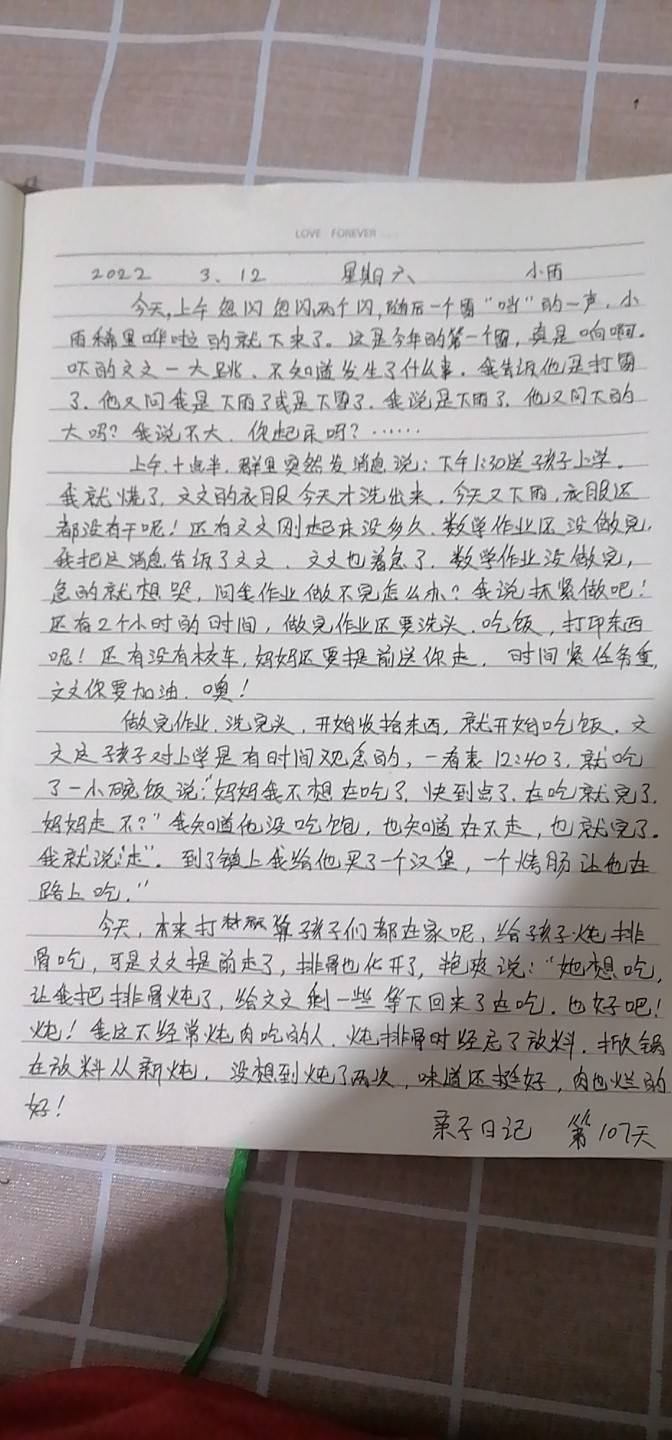 LOVE FOREVER
2022 3. 12 星期六 小雨
今天,上午忽闪忽闪两个闪,随后一个雷"咣"的一声,小
雨稀里哗啦的就下来了。这是今年的第一个雷,真是响啊。
吓的文文一大跳、不知道发生了什么事,我告诉他是打雷
了.他又问我是下雨了或是下雪了.我说是下雨了,他又问下的
大吗?我说不大.你起床吗?……
上午.十点半.群里突然发消息说:下午1:30送孩子上学。
我就慌了,文文的衣服今天才洗出来,今天又下雨,衣服还
都没有干呢!还有文文刚起床没多久.数学作业还没做完,
我把这消息告诉了文文.文文也着急了.数学作业没做完,
急的就想哭,问我作业做不完怎么办?我说抓紧做吧!
还有2个小时的时间,做完作业还要洗头.吃饭,打印东西
呢!还有没有校车,妈妈还要提前送你走.时间紧任务重,
文文你要加油.噢!
做完作业.洗完头,开始收拾东西,就开始吃饭.文
文这孩子对上学是有时间观念的,一看表12:40了,就吃
了一小碗饭说:"妈妈我不想在吃了,快到点了.在吃就完了.
妈妈走不?"我知道他没吃饱,也知道在不走,也就完了.
我就说:"走".到了镇上我给他买了一个汉堡,一个烤肠让他在
路上吃."
今天,本来打算孩子们都在家呢,给孩子炖排
骨吃,可是文文提前走了,排骨也化开了,艳爽说:"她想吃,
让我把排骨炖了,给文文剩一些等下回来了在吃.也好吧!
炖!我这不经常炖肉吃的人.炖排骨时经忘了放料.掀锅
在放料从新炖.没想到炖了两次,味道还挺好,肉也烂的
好!
亲子日记 第107天